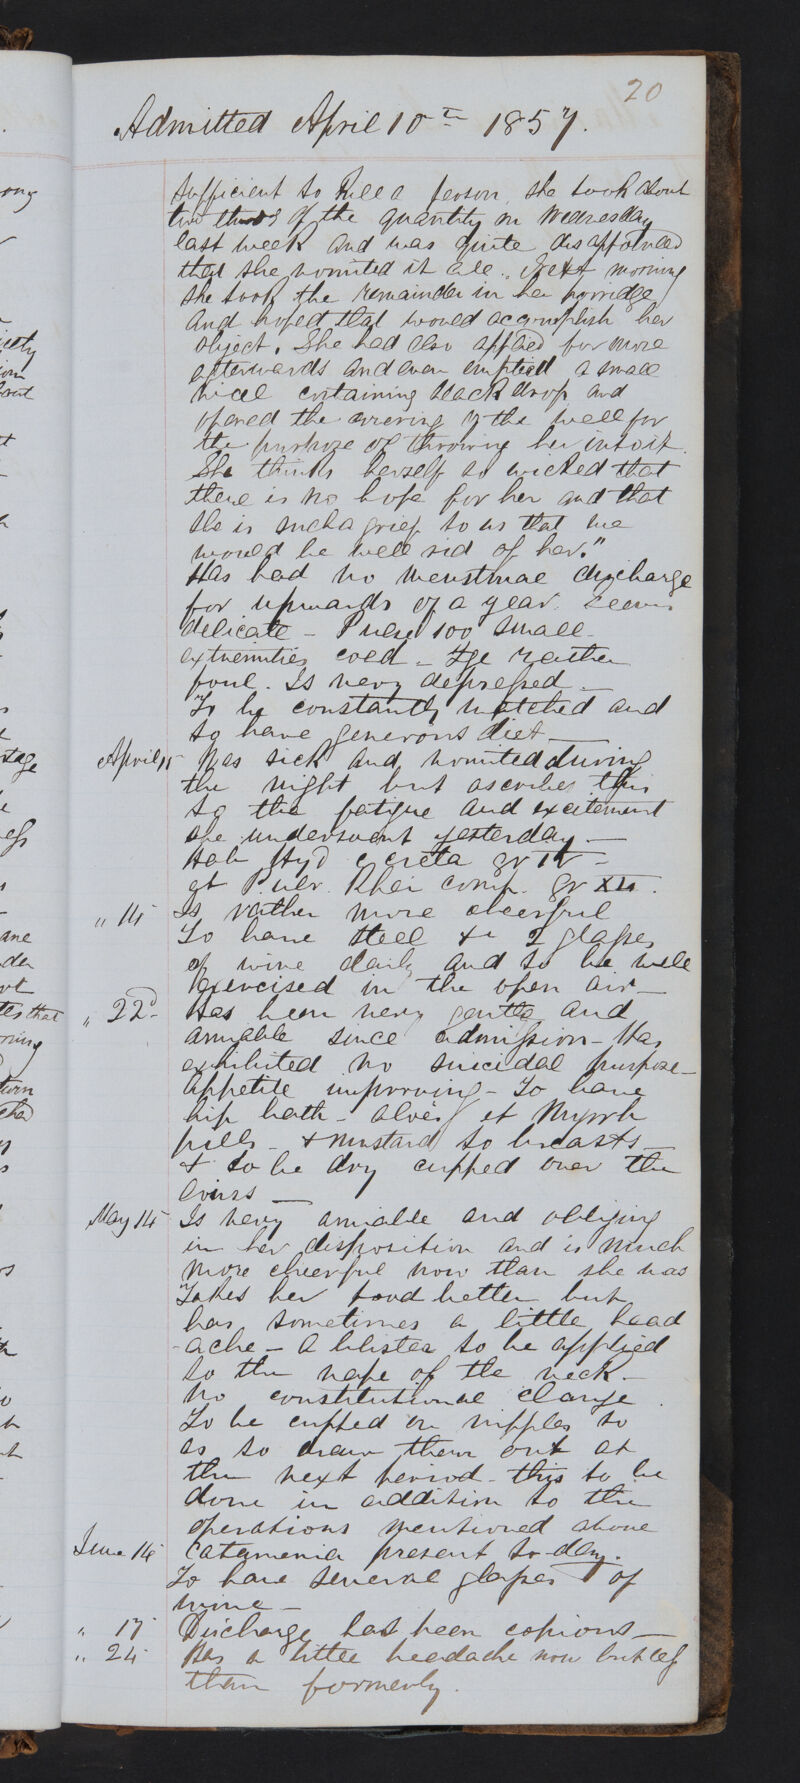 20
Admitted April 10th 1857.
sufficient to kill a person, she took about
two thirds of the quantity on Wednesday
last week and was quite disappointed
that she vomited it all. Next morning
she took the remainder in her porridge
and hoped that would accomplish her
object. She had also applied for more
afterwards and even emptied a small
containing black drop and
opened the covering of the well for
the purpose of throwing her into it.
She thinks herself so wicked that
there is no hope for her and that
she is such a grief to us that we
would be well rid of her."
Has had no menstrual discharge
for upwards of a year. Seems
delicate - Pulse 100 small -
extremities cold - rather
foul. Is very depressed -
To be constantly watched and
to have generous diet -
April 11 Was sick and vomited during
the night but ascribes this
to the fatigue and excitement
she underwent yesterday -
Hab Hyd c creta gr IV -
et Pulv. Rhei comp. gr
" 14 Is rather more cheerful
To have steel & 2 glasses
of wine daily and to be well
exercised in the open air -
" 22d - Has been very gentle and
amiable since admission - Has
exhibited no suicidal purpose -
Appetite improving - To have
hip bath - aloes et Myrrh
pills - & mustard to breasts -
& to be dry cupped over the
loins -
May 14 Is very amiable and obliging
in her disposition and is much
more cheerful now than she was
Takes her food better but
has sometimes a little head
-ache - A blister to be applied
to the nape of the neck -
No constitutional change.
To be cupped on nipples so
as to draw them out at
the next period - this to be
done in addition to the
operations mentioned above
June 14 Catamenia present to-day.
To have several glasses of
wine -
" 17 Discharge has been copious -
" 24 Has a little headache now but less
than formerly.